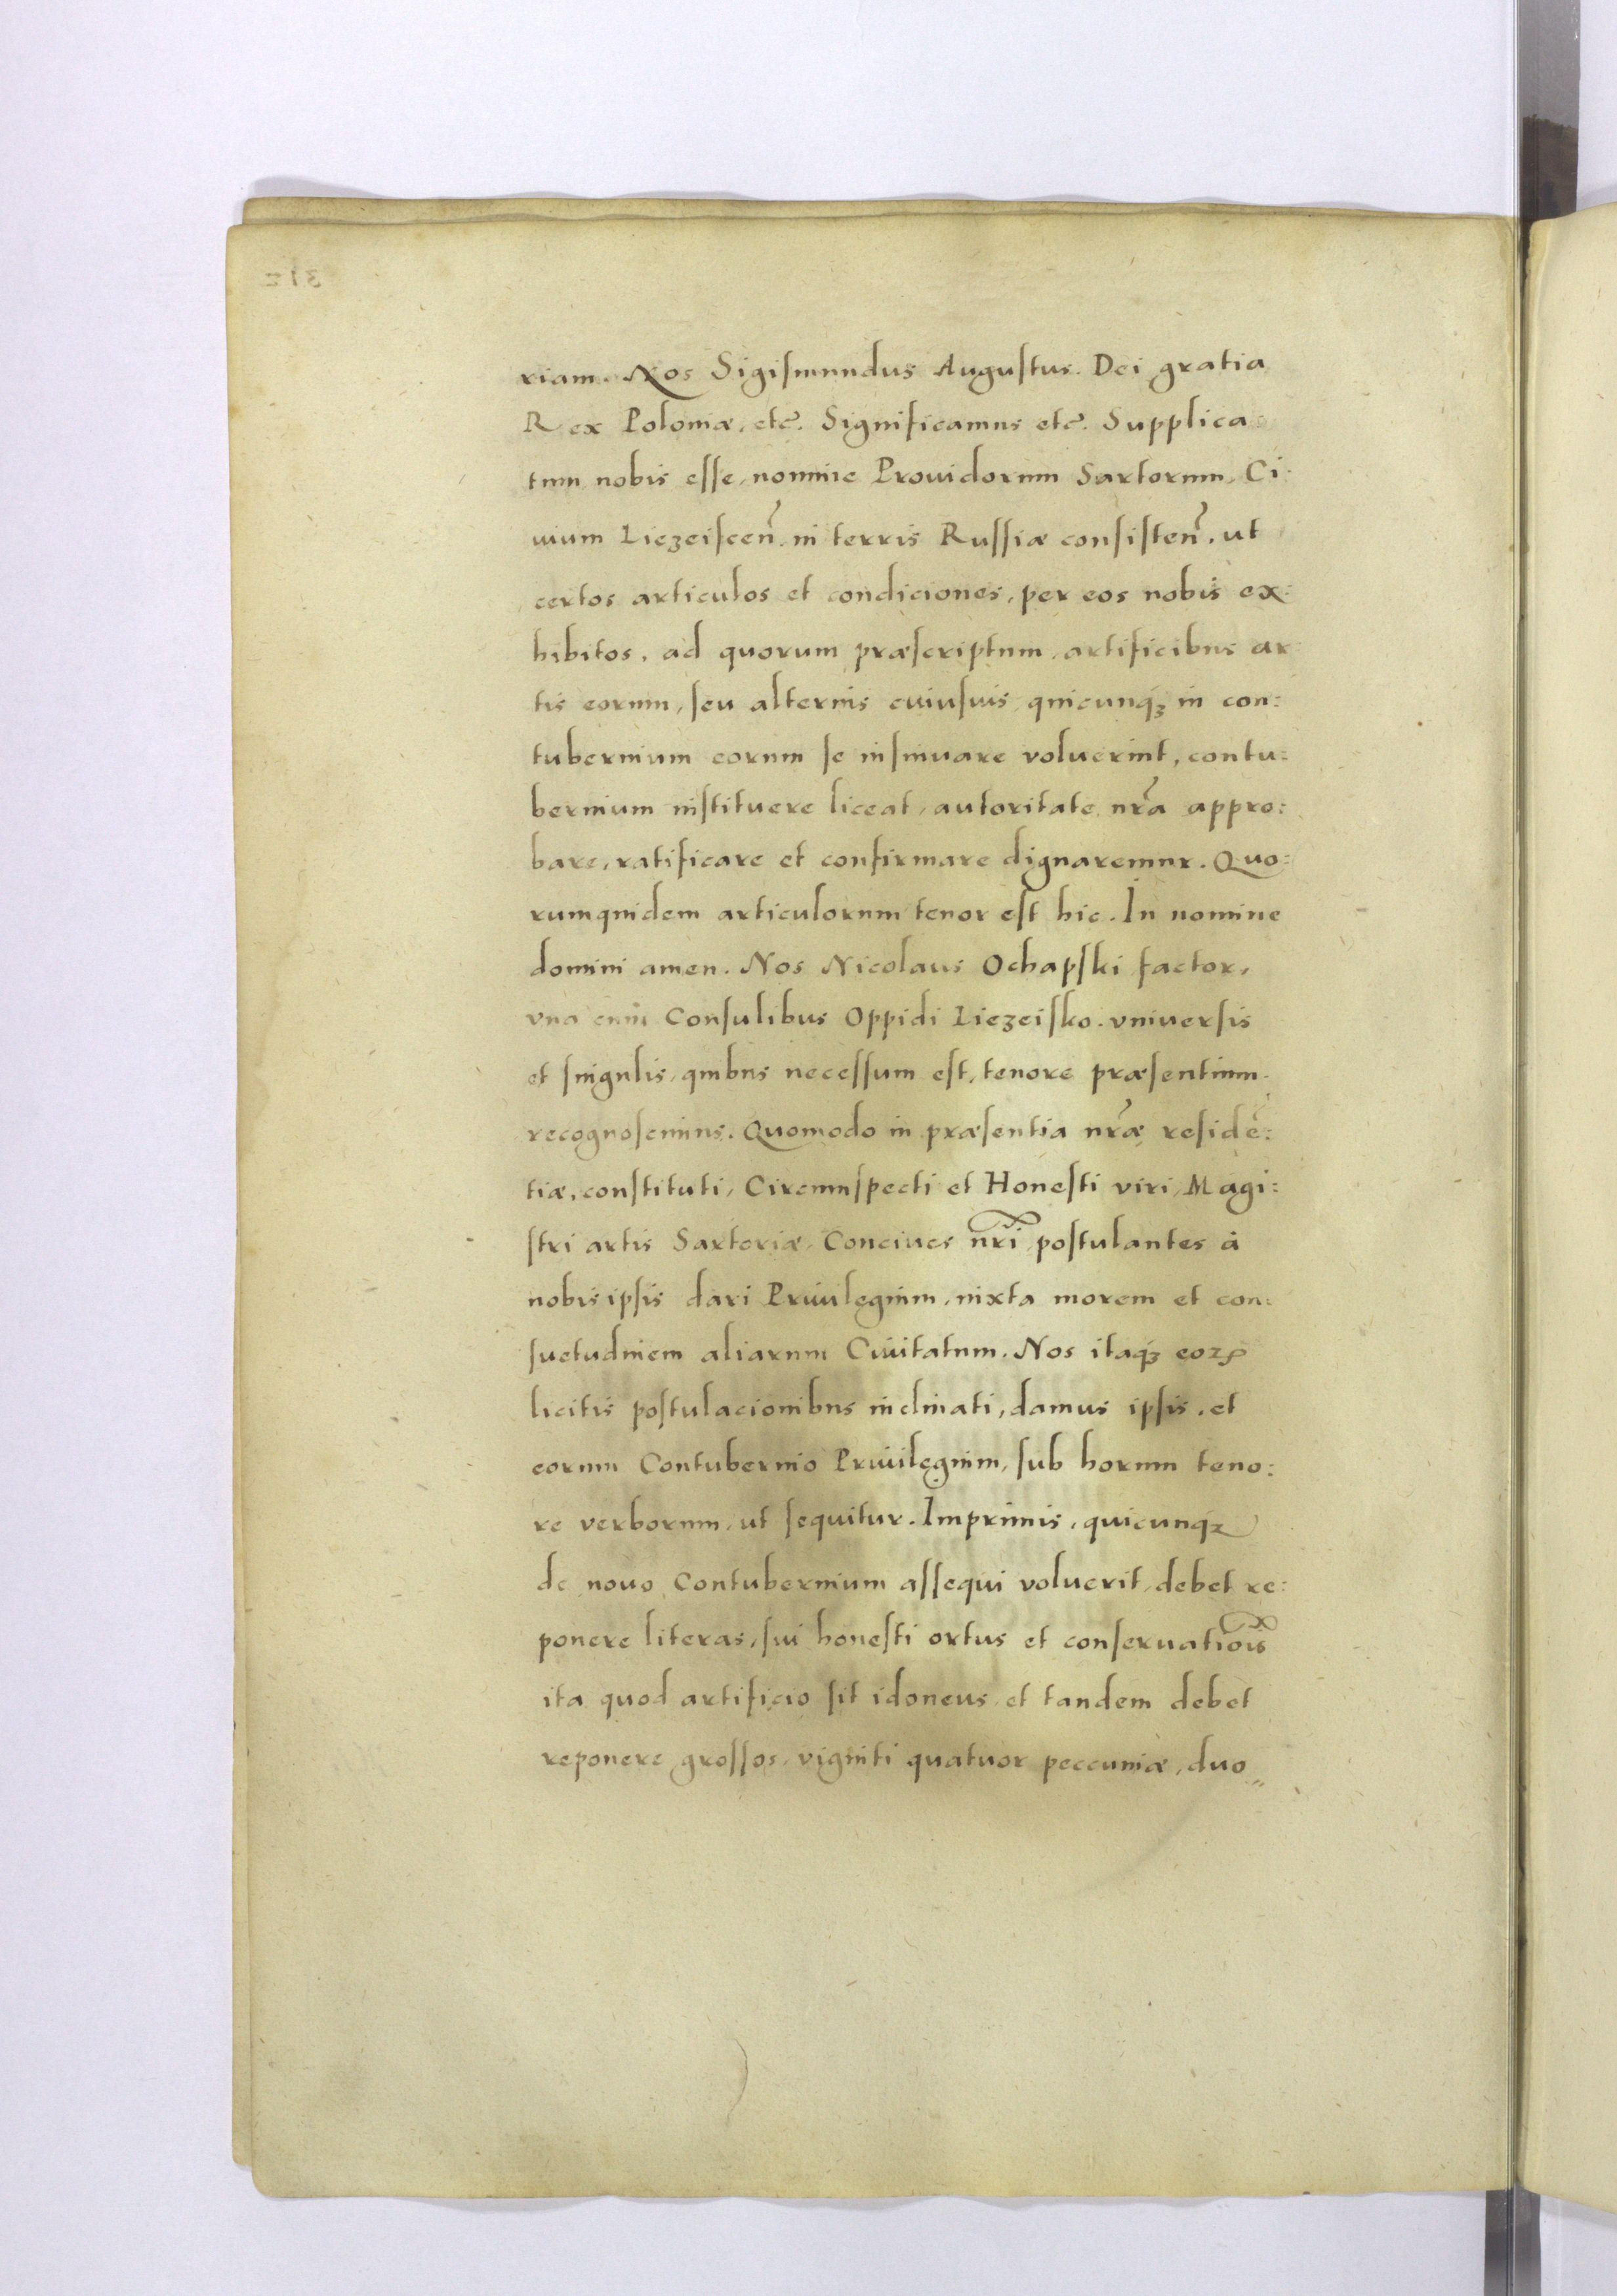 riam. Nos Sigiſmundus Auguſtus. Dei gratia
Rex Poloniæ, etc̃. Significamus etc̃. Supplica
tum nobis eſſe, nomine Prouidorum Sartorum, Ci:
uium Liezeiſcen̄. in terris Ruſſiæ conſiſten̄. ut
certos articulos et condiciones, per eos nobis ex:
hibitos, ad quorum præſcriptum, artificibus ar
tis eorum, ſeu alterius cuiuſuis, quicunqꝫ in con:
tubernium eorum ſe inſinuare voluerint, contu:
bernium inſtituere liceat, autoritate nr̃a appro:
bare, ratificare et confirmare dignaremur. Quo:
rumquidem articulorum tenor eſt hic. In nomine
domini amen. Nos Nicolaus Ochapſki factor,
vna cum Conſulibus Oppidi Liezeiſko. vniuerſis
et ſingulis, quibus neceſſum eſt, tenore præſentium.
recognoſcimus. Quomodo in præſentia nr̃æ reſidē:
tiæ, conſtituti, Circumſpecti et Honeſti viri, Magi:
ſtri artis Sartoriæ, Conciues nr̃i, poſtulantes à
nobis ipſis dari Priuilegium, iuxta morem et con:
ſuetudinem aliarum Ciuitatum. Nos itaqꝫ eoꝝ
licitis poſtulacionibus inclinati, damus ipſis, et
eorum Contubernio Priuilegium, ſub horum teno:
re verborum, ut ſequitur. Imprimis, quicunqꝫ
de nouo Contubernium aſſequi voluerit, debet re:
ponere literas, ſui honeſti ortus et conſeruatiōis
ita quod artificio ſit idoneus, et tandem debet
reponere groſſos, viginti quatuor peccuniæ, duo„